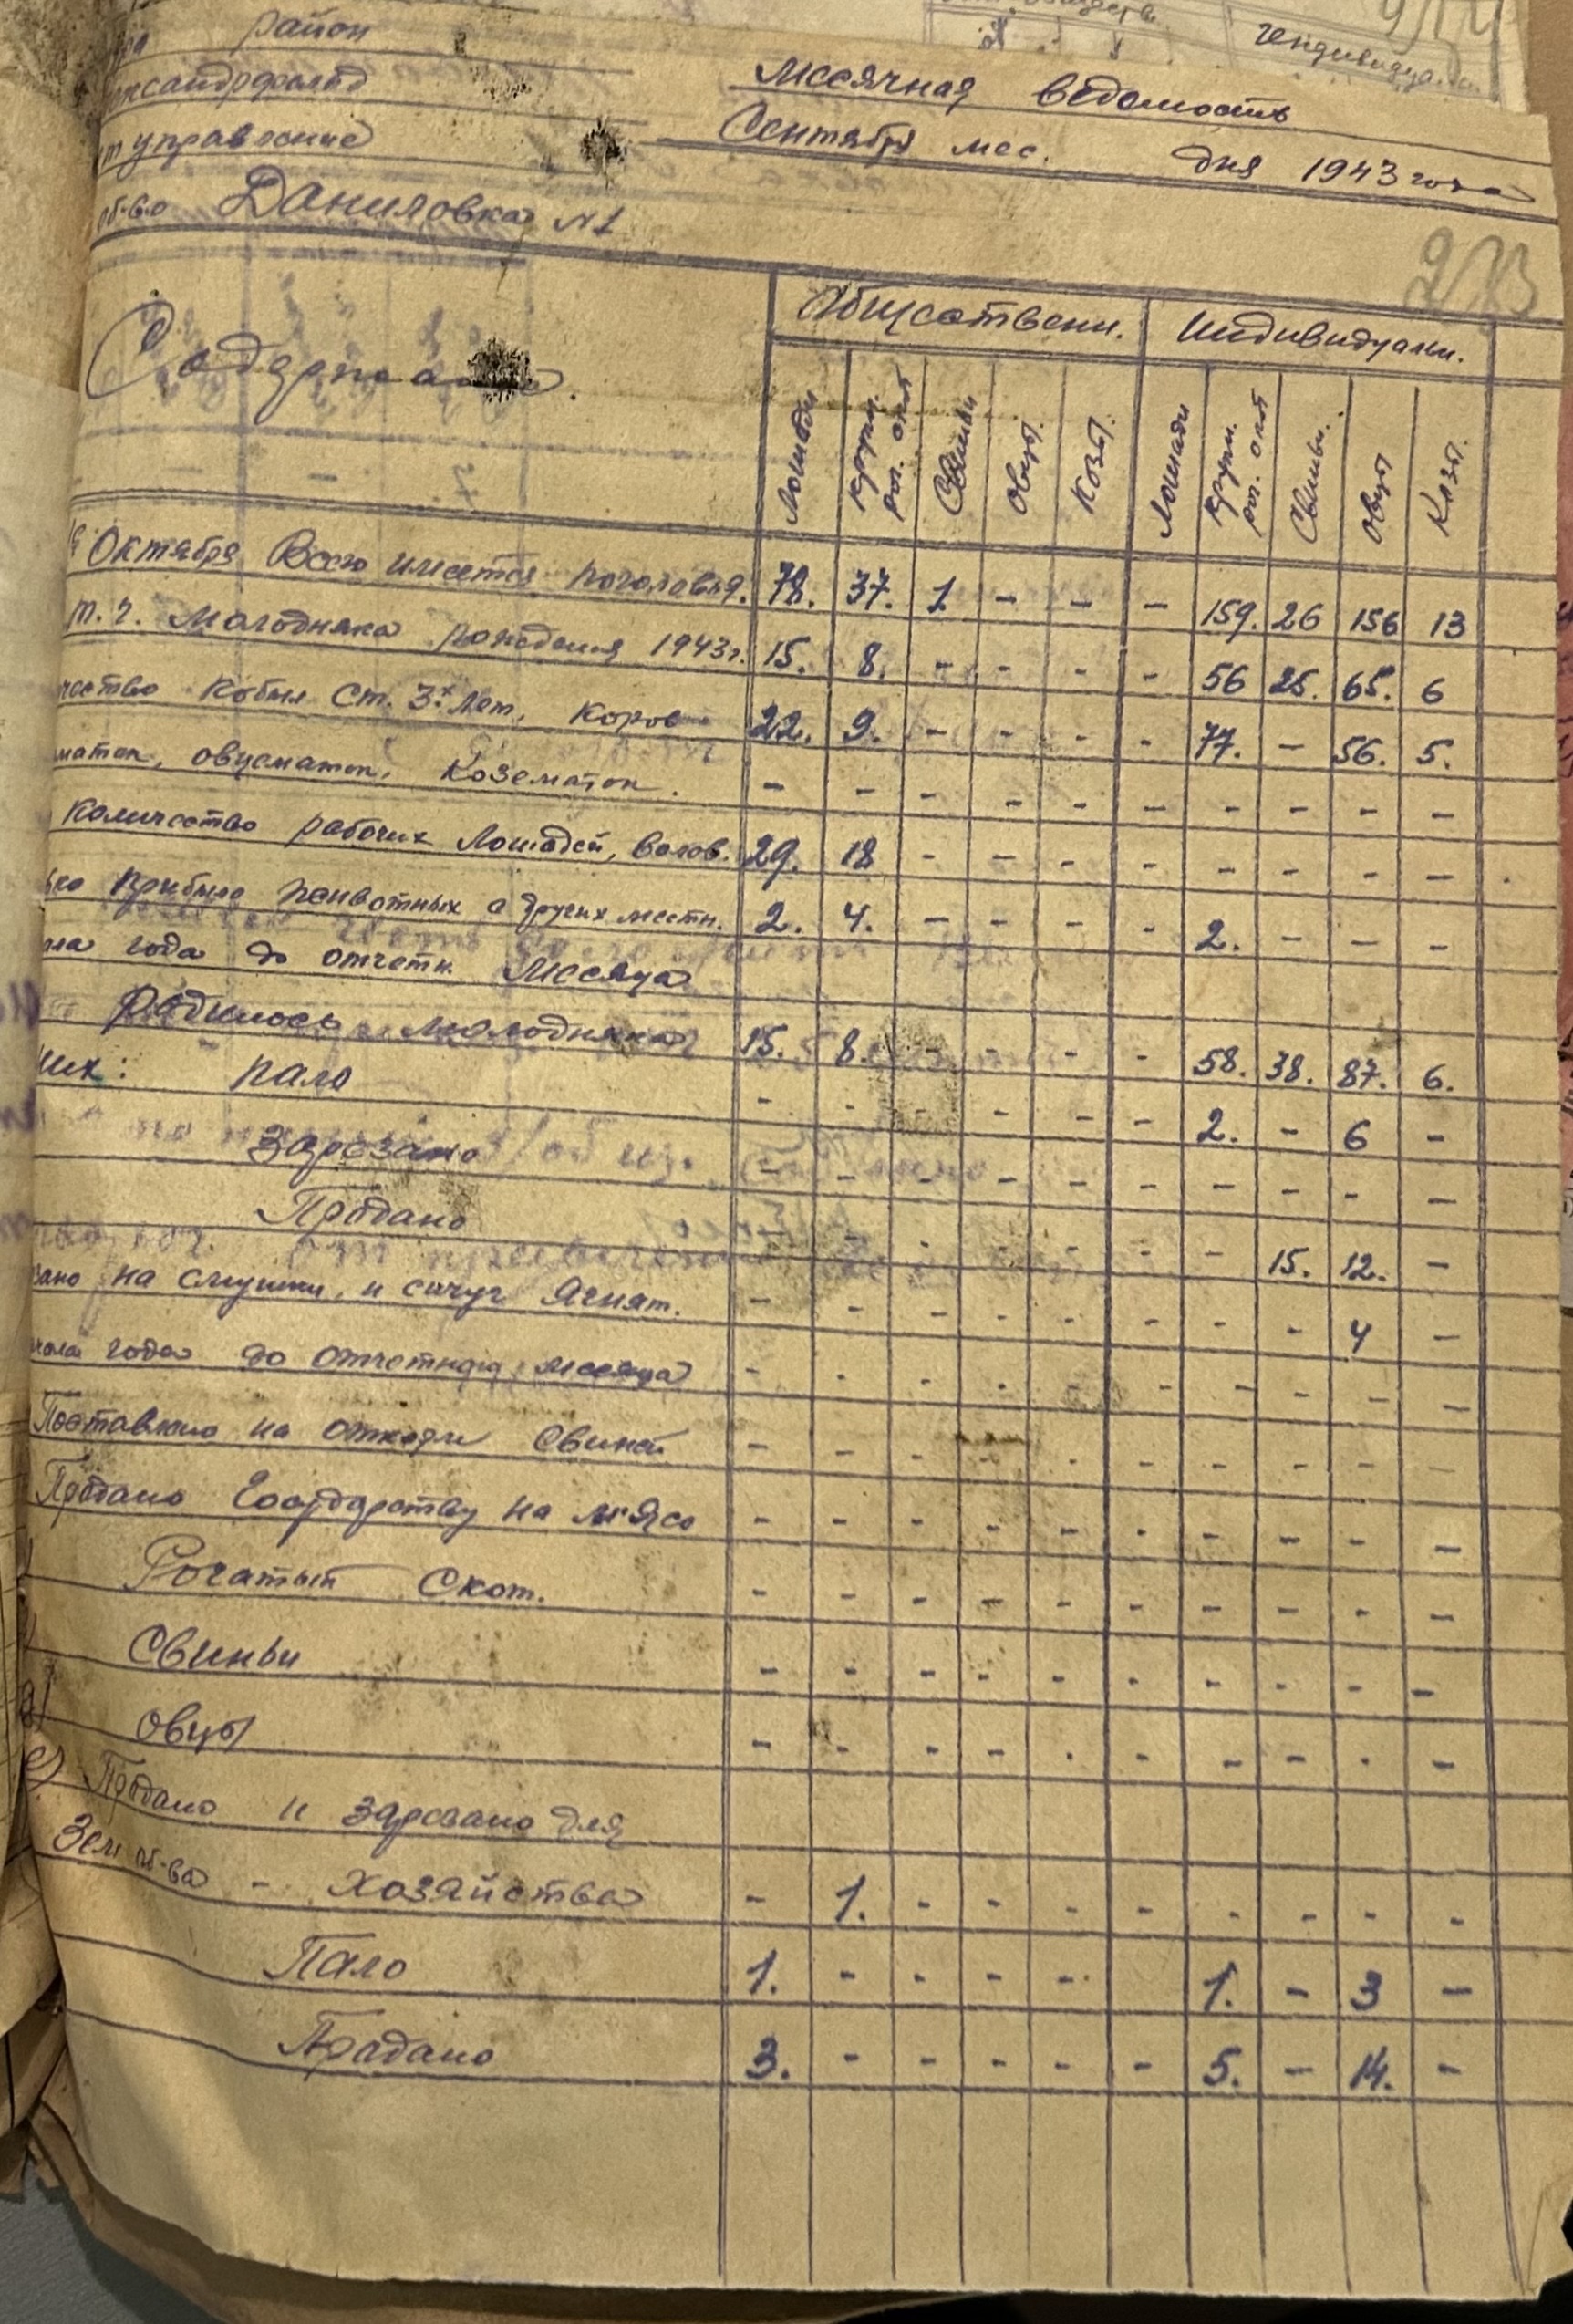 район
т управление
об-во Даниловка №1
Месячная ведомость
Сентября мес. дня 1943 года
213
Содержание.
Общественн. Индивидуальн.
Лошади крупн. рог. скот Свиньи Овцы. Козы. Лошади крупн. рог. скот Свиньи. Овцы Козы.
Октября Всего имеется поголовья. 78. 37. 1. - - - 159. 26 156 13
т. ч. Молодняка рождения 1943 г. 15. 8. - - - - 56 25. 65. 6
чество кобыл ст. 3х лет, коров 22. 9. - - - - 77. - 56. 5.
маток, овцематок, козематок. - - - - - - - - - -
Количество рабочих лошадей, волов. 29. 18 - - - - - - - -
ко прибыло животных с других местн. 2. 4. - - - - 2. - - -
ла года до отчетн. месяца
родилось молодняка 15. 8. - - - - 58. 38. 87. 6.
них: пало - - - - - - 2. - 6 -
Зарезано - - - - - - - - - -
Продано - - - - - - 15. 12. -
зано на смушки, и сычуг ягнят. - - - - - - - - 4 -
чала года до отчетного месяца - - - - - - - - - -
Поставлено на откорм свиней - - - - - - - - - -
Продано Государству на мясо - - - - - - - - - -
Рогатый Скот. - - - - - - - - - -
Свиньи - - - - - - - - - -
Овцы - - - - - - - - - -
Продано и зарезано для
Зем об-ва - хозяйства - 1. - - - - - - - -
Пало 1. - - - - 1. - 3 -
Продано 3. - - - - - 5. - 14. -